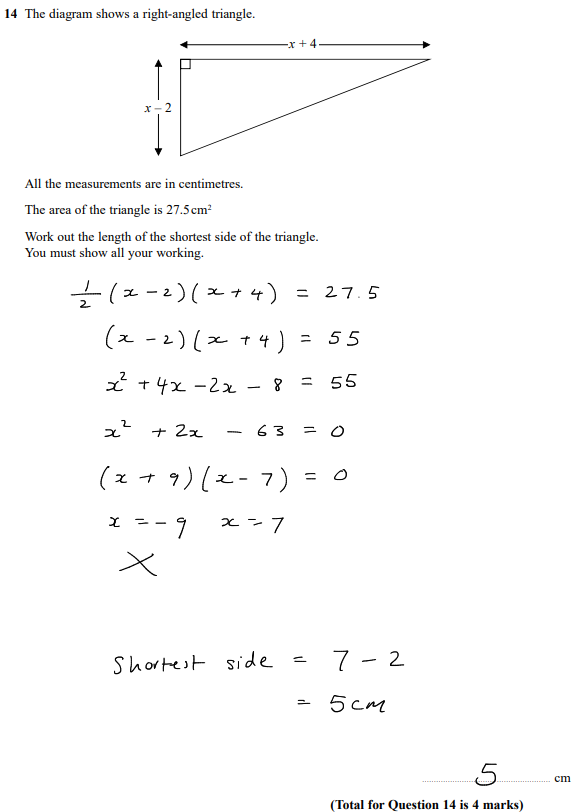 14 The diagram shows a right-angled triangle.
x + 4
x – 2
All the measurements are in centimetres.
The area of the triangle is 27.5 cm²
Work out the length of the shortest side of the triangle.
You must show all your working.
1/2 (x - 2)(x + 4) = 27.5
(x - 2)(x + 4) = 55
x² + 4x - 2x - 8 = 55
x² + 2x - 63 = 0
(x + 9)(x - 7) = 0
x = -9 x = 7
X
Shortest side = 7 - 2
= 5cm
5 cm
(Total for Question 14 is 4 marks)